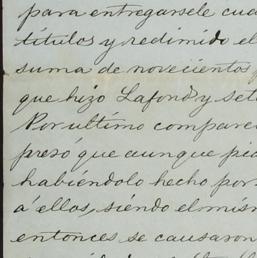 para entregarsele cua
titulos y redimido el
suma de novecientos
que hizo Lafond y set
Por ultimo compare
presó que aunque pi
habiéndolo hecho por
á ellos, siéndo el mis
entonces se causaron